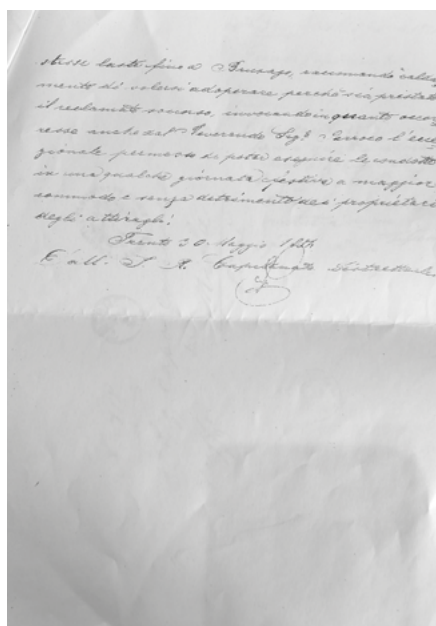 stesse laste fino a , raccomando calda
mente di volersi adoperare perchè sia prestato
il reclamato soccorso, invocando in quanto occor
resse anche dal Reverendo Sig.r Parroco l'ecce
zionale permesso di poter eseguire le condotte
in una qualche giornata festiva a maggior
commodo e senza detrimento dei proprietari
degli attiragli.
Trento 30. Maggio
E all. I. R. Capitanato Distrettuale